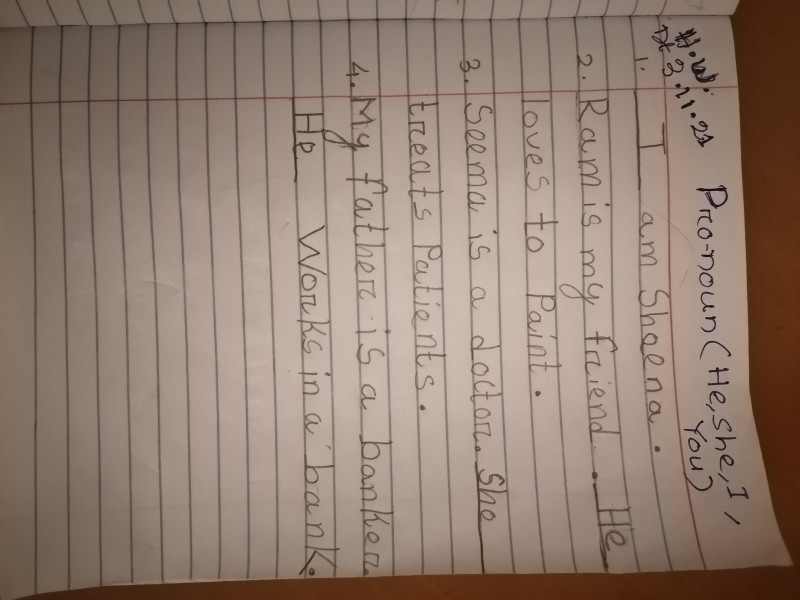 H.W:
Dt 3.11.21
Pro-noun (He, she, I,
You)
1. I am Shaena.
2. Ram is my friend. He
loves to Paint.
3. Seema is a doctor. She
treats Patients.
4. My father is a banker.
He Works in a bank.